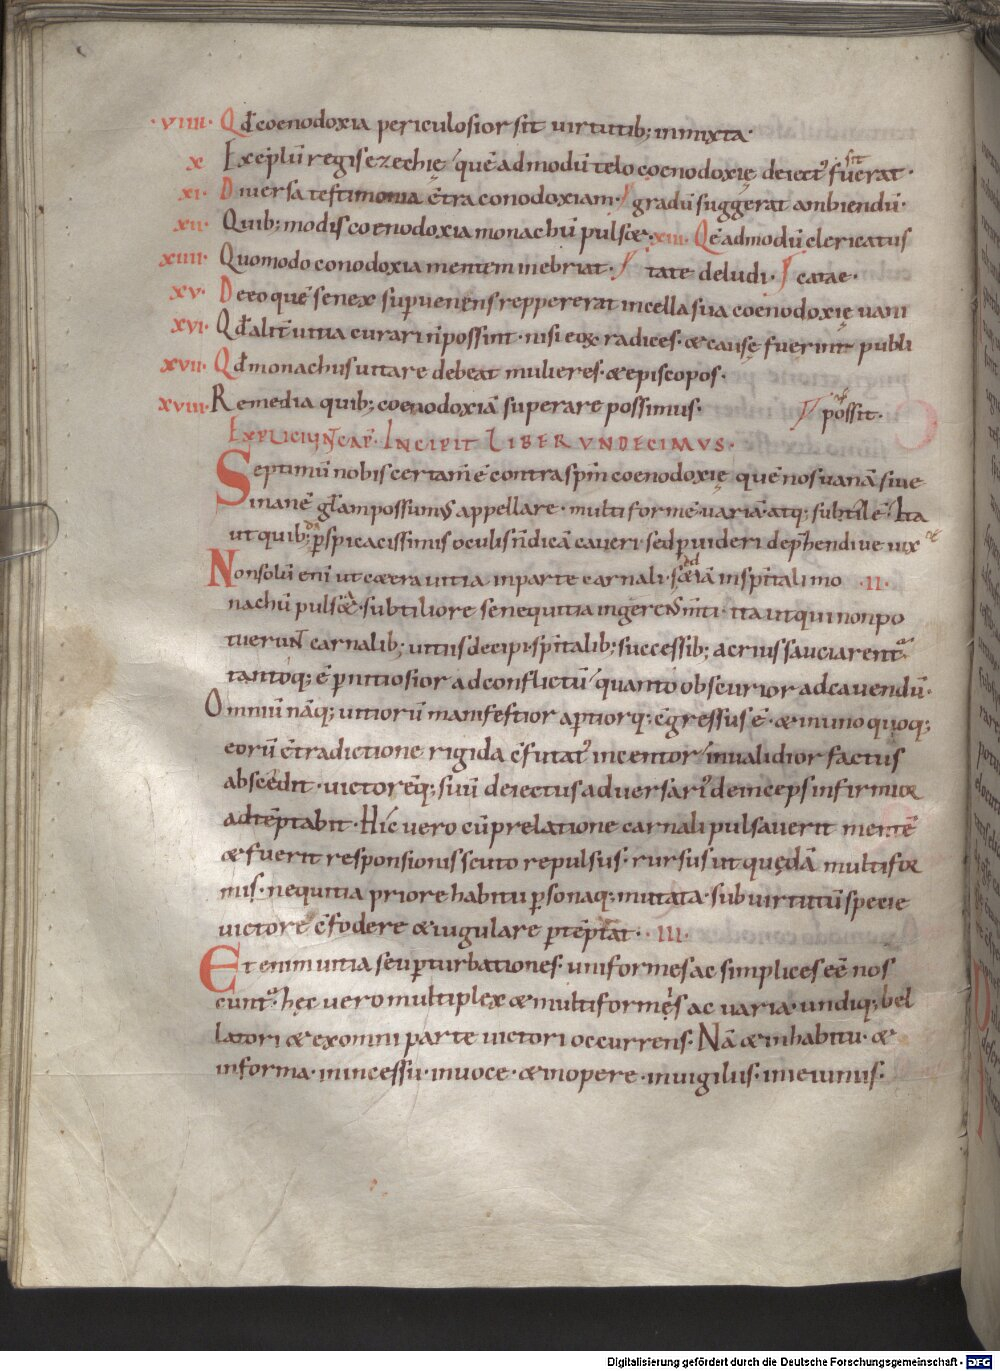 ·VIIII· Qđ coenodoxia periculosior sit uirtutib; inmixta·
X Exēplū regis ezechię quēadmodū telo coenodoxię deiect' fuerat· sit
XI· Diuersa testimonia c̄tra conodoxiam· gradū suggerat ambiendū·
XII· Quib; modis coenodoxia monachū pulsæ· XIII· Qēadmodū clericatus
XIIII· Quomodo conodoxia mentem inebriat· tate deludi· catae·
XV· De eo quē senex supueniens reppererat in cella sua coenodoxię uani
XVI· Qđ alit uitia curari n̄ possint· nisi eoꝝ radices· & causę fuerint publi
XVII· Qđ monachus uitare debeat mulieres· & episcopos·
XVIII· Remedia quib; coenodoxiā superare possimus· possit·
EXPLICIUNT CAP̄· INCIPIT LIBER UNDECIMUS·
Septimū nobis certam̄ ē contra sp̄m coenodoxię quē nos uanā siue
inanē gl̄am possumus appellare· multiformē uariā atq; subtilē· Ita
ut quib; ꝑspicacissimis oculis n̄ dicā caueri sed ꝑuideri dep̄hendi ue uix
Non solū eni ut cætera uitia in parte carnali· sed & iā in sp̄itali mo ·II·
nachū pulsæ· subtiliore se nequitia ingerens m̄ti· ita ut qui non po
tuerunt carnalib; uitiis decipi· sp̄italib; successib; acrius sauciarent·
tantoq; ē ꝑnitiosior ad conflictū quanto obscurior ad cauendū·
Omniū nāq; uitiorū manifestior aptiorq; c̄gressus ē· & in uno quoq;
eorū c̄tradictione rigida c̄futat' incentor inualidior factus
abscedit· uictorēq; suū deiectus aduersari' deinceps infirmior
adtēptabit· Hic uero cū prelatione carnali pulsauerit mentē
& fuerit responsionis scuto repulsus· rursus ut quędā multifor
mis· nequitia priore habitu ꝑsonaq; mutata· sub uirtutū specie
uictorē c̄fodere & iugulare ꝑtēptat· ·III·
Et enim uitia seu ꝑturbationes· uniformes ac simplices eē nos
cunt'· hęc uero multiplex & multiformis ac uaria· undiq; bel
latori & ex omni parte uictori occurrens· Nā & in habitu· &
in forma· in incessu· in uoce· & in opere· in uigiliis· in ieiuniis·
Digitalisierung gefördert durch die Deutsche Forschungsgemeinschaft - DFG